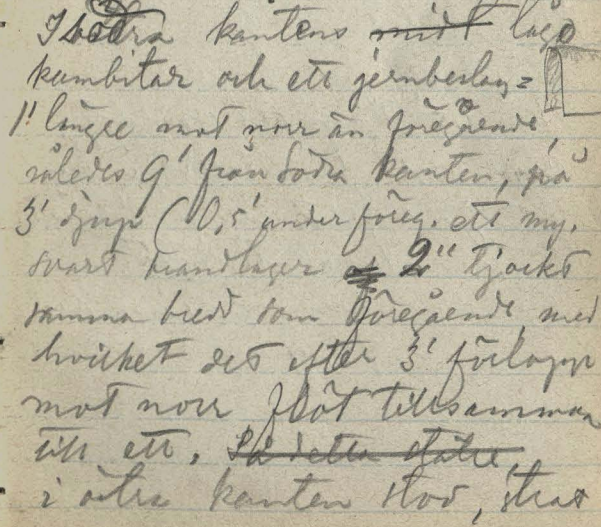 I södra kantens midt lågo
kambitar och ett jernbeslag =
1' längre mot norr än föregående,
således 9' från södra kanten, på
3' djup (0,5' under föreg. ett my.
svart brandlager 2" tjockt
samma bredd som föregående, med
hvilket det efter 3' förlopp
mot norr flöt tillsamman
till ett. På detta ställe,
i östra kanten stod, strax